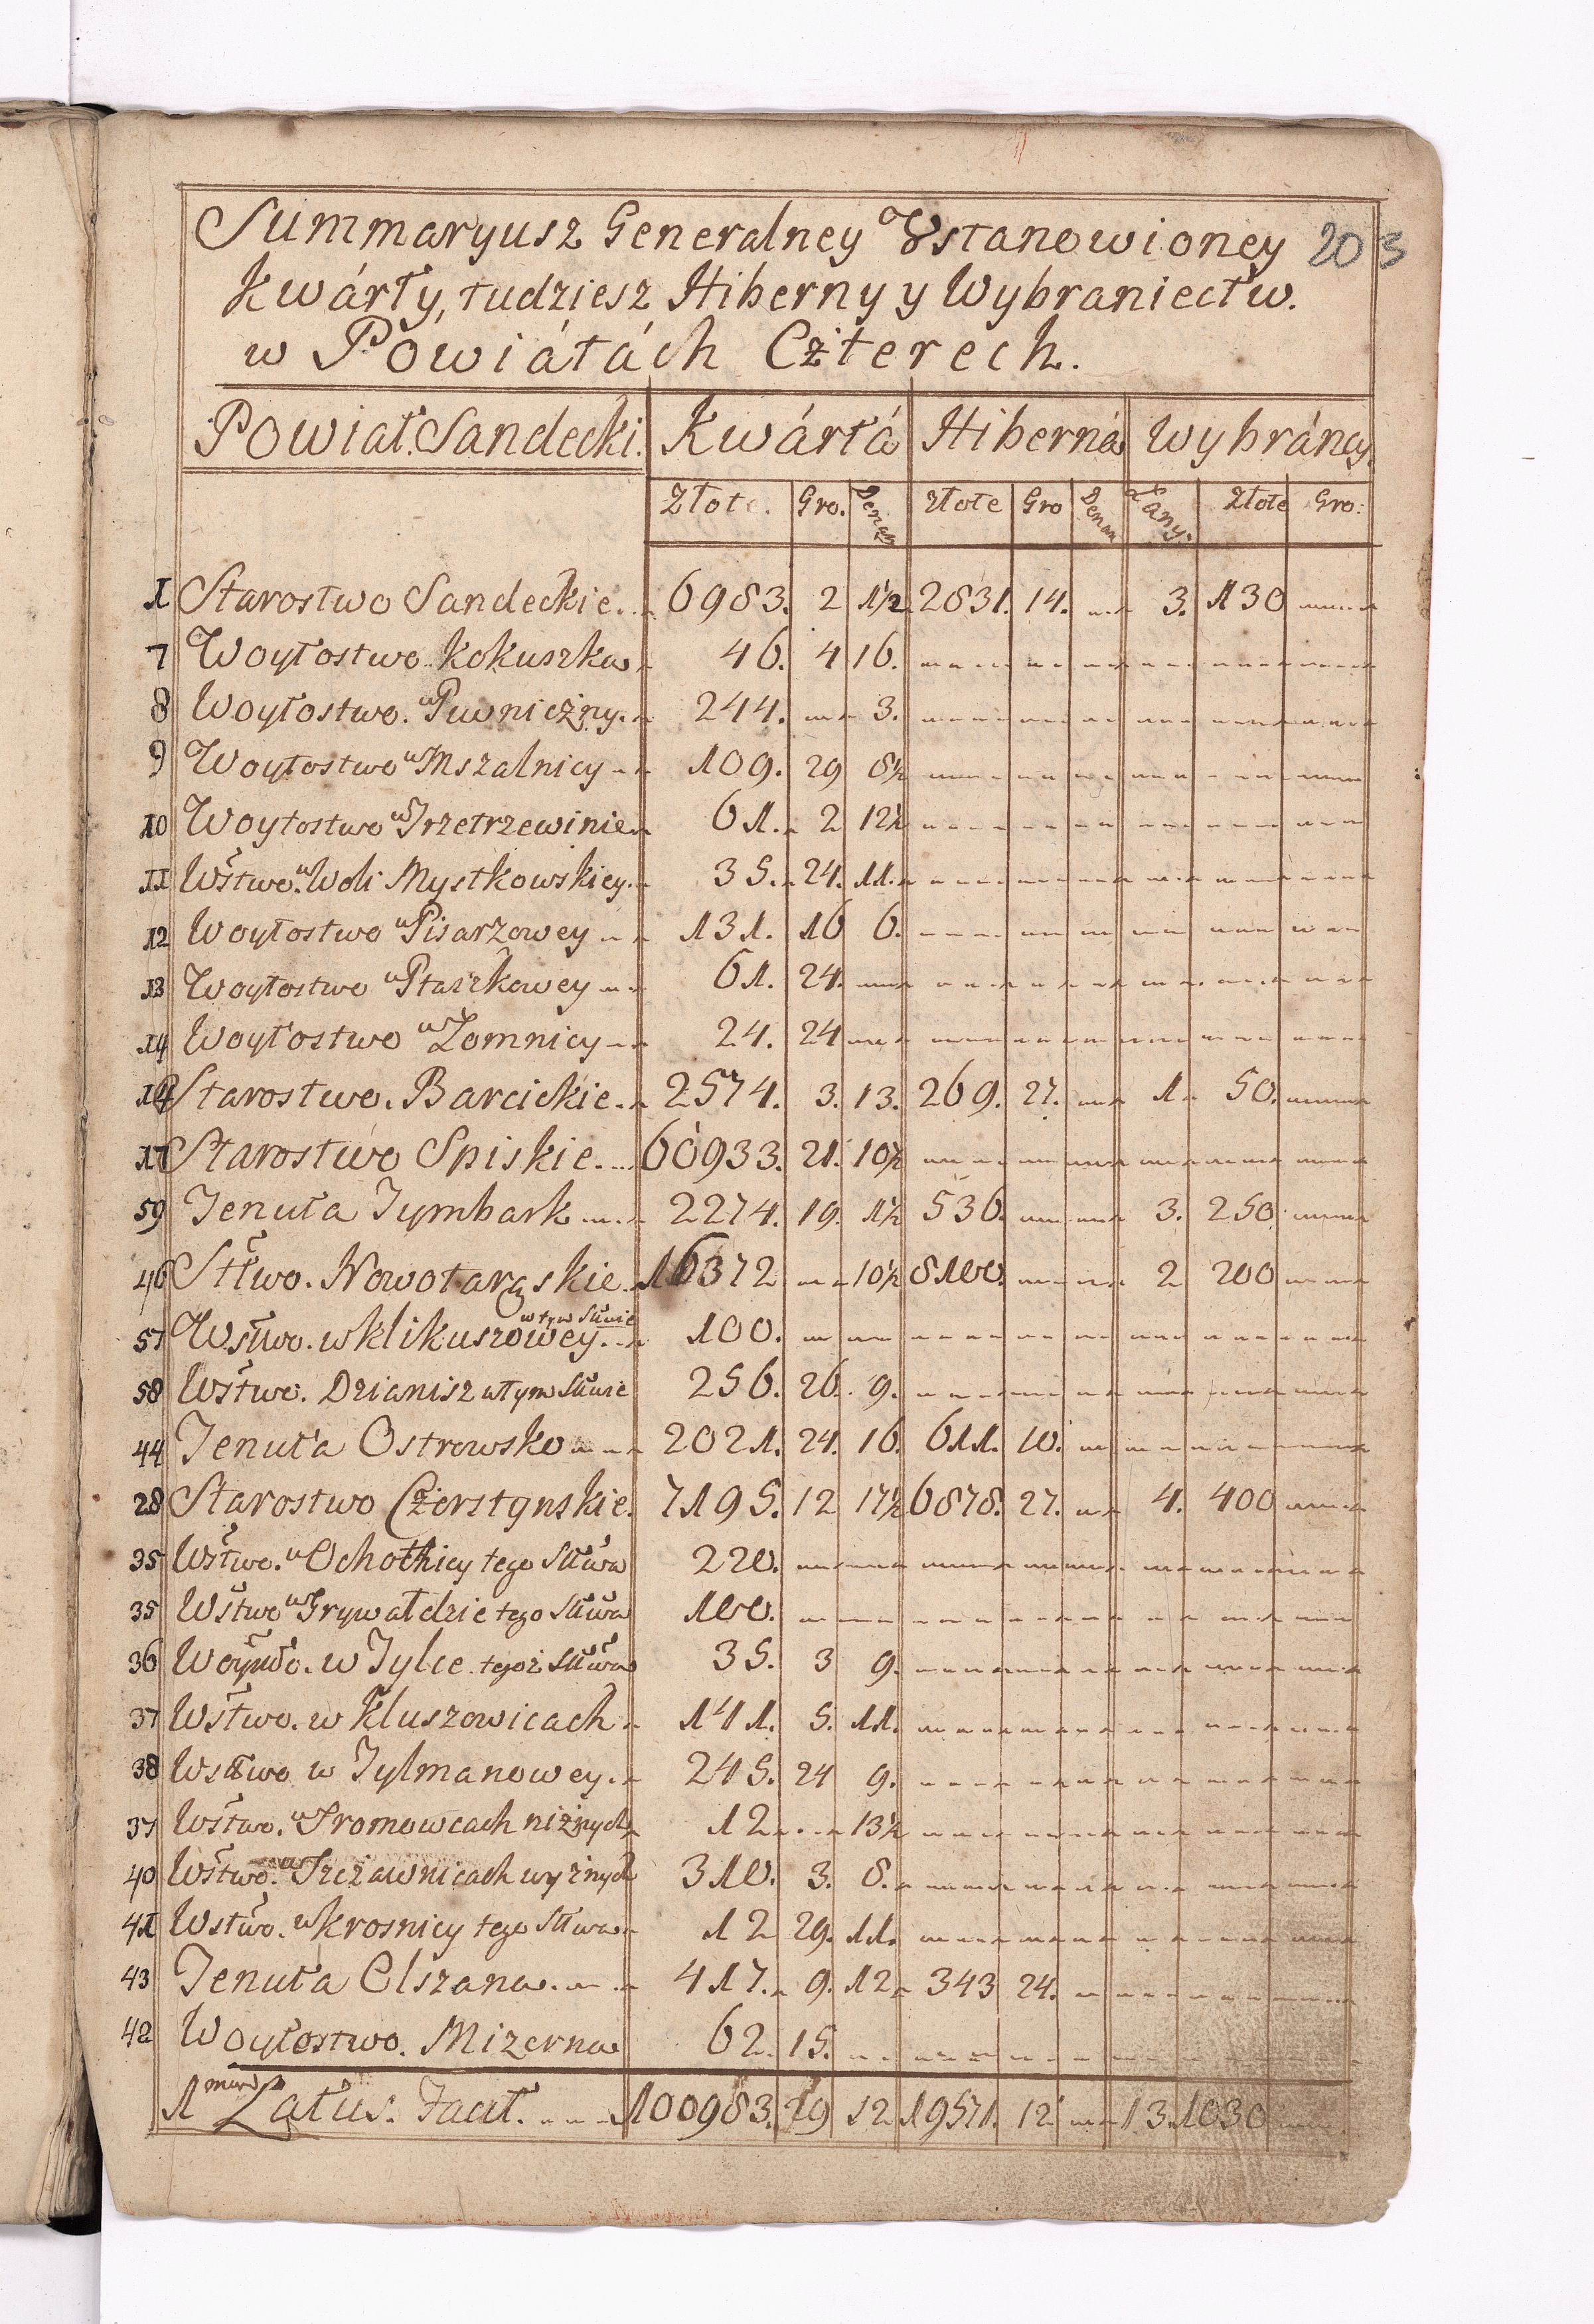 Summaryusz Generalney Ustanowioney 203
Kwárty, tudziesz Hiberny y Wybraniectw.
w Powiátách Czterech.
Powiat Sandecki. Kwártá Hiberná Wybráncy.
Złote. Gro. Denar Złote Gro Denar Łany. Złote Gro:
1 Starostwo Sandeckie. 6983. 2 1½ 2831. 14. 3. 130
7 Woytostwo Kokuszka 46. 4 16.
8 Woytostwo. w Piwniczny. 244. 3.
9 Woytostwo w Mszalnicy 109. 29 8½
10 Woytostwo w Trzetrzewinie 61. 2 12½
11 Wstwo. w Woli Mystkowskiey. 35. 24. 11.
12 Woytostwo w Pisarzowey 131. 16 6.
13 Woytostwo w Ptaszkowey 61. 24.
14 Woytostwo w Łomnicy 24. 24
Starostwo. Barcickie. 2574. 3. 13. 269. 27. 1 50.
17 Starostwo Spiskie. 60933. 21. 10½
59 Tenuta Tymbark 2274. 19. 1½ 536. 3. 250
46 Sttwo. Nowotargskie 16372 10½ 8100. 2 200
57 Wstwo. w Klikuszowey. w tym Sttwie 100.
58 Wstwo. Dzianisz w tym Sttwie 256. 26. 9.
44 Tenuta Ostrowsko 2021. 24. 16. 611. 10.
28 Starostwo Czorstynskie. 7195. 12 17½ 6878. 27. 4. 400
35 Wstwo. w Ochotnicy tego Sttwa 220.
35 Wstwo w Grywałdzie tego Sttwa 100.
36 Woytwo. w Tylce tegoz Sttwa 35. 3 9.
37 Wstwo. w Kluszowicach 141. 5. 11.
38 Wstwo w Tylmanowey. 245. 24 9.
37 Wstwo. w Sromowcach niżnych 12 13½
40 Wstwo. w Szczawnicach wyżnych 310. 3. 8.
41 Wstwo. w Krosnicy tego Sttwa 12 29. 11.
43 Tenuta Olszana. 417. 9. 12 343 24.
42 Woytostwo. Mizerna 62. 15.
1mum Latus. Facit. 100983. 29 12 19571. 12 13. 1030